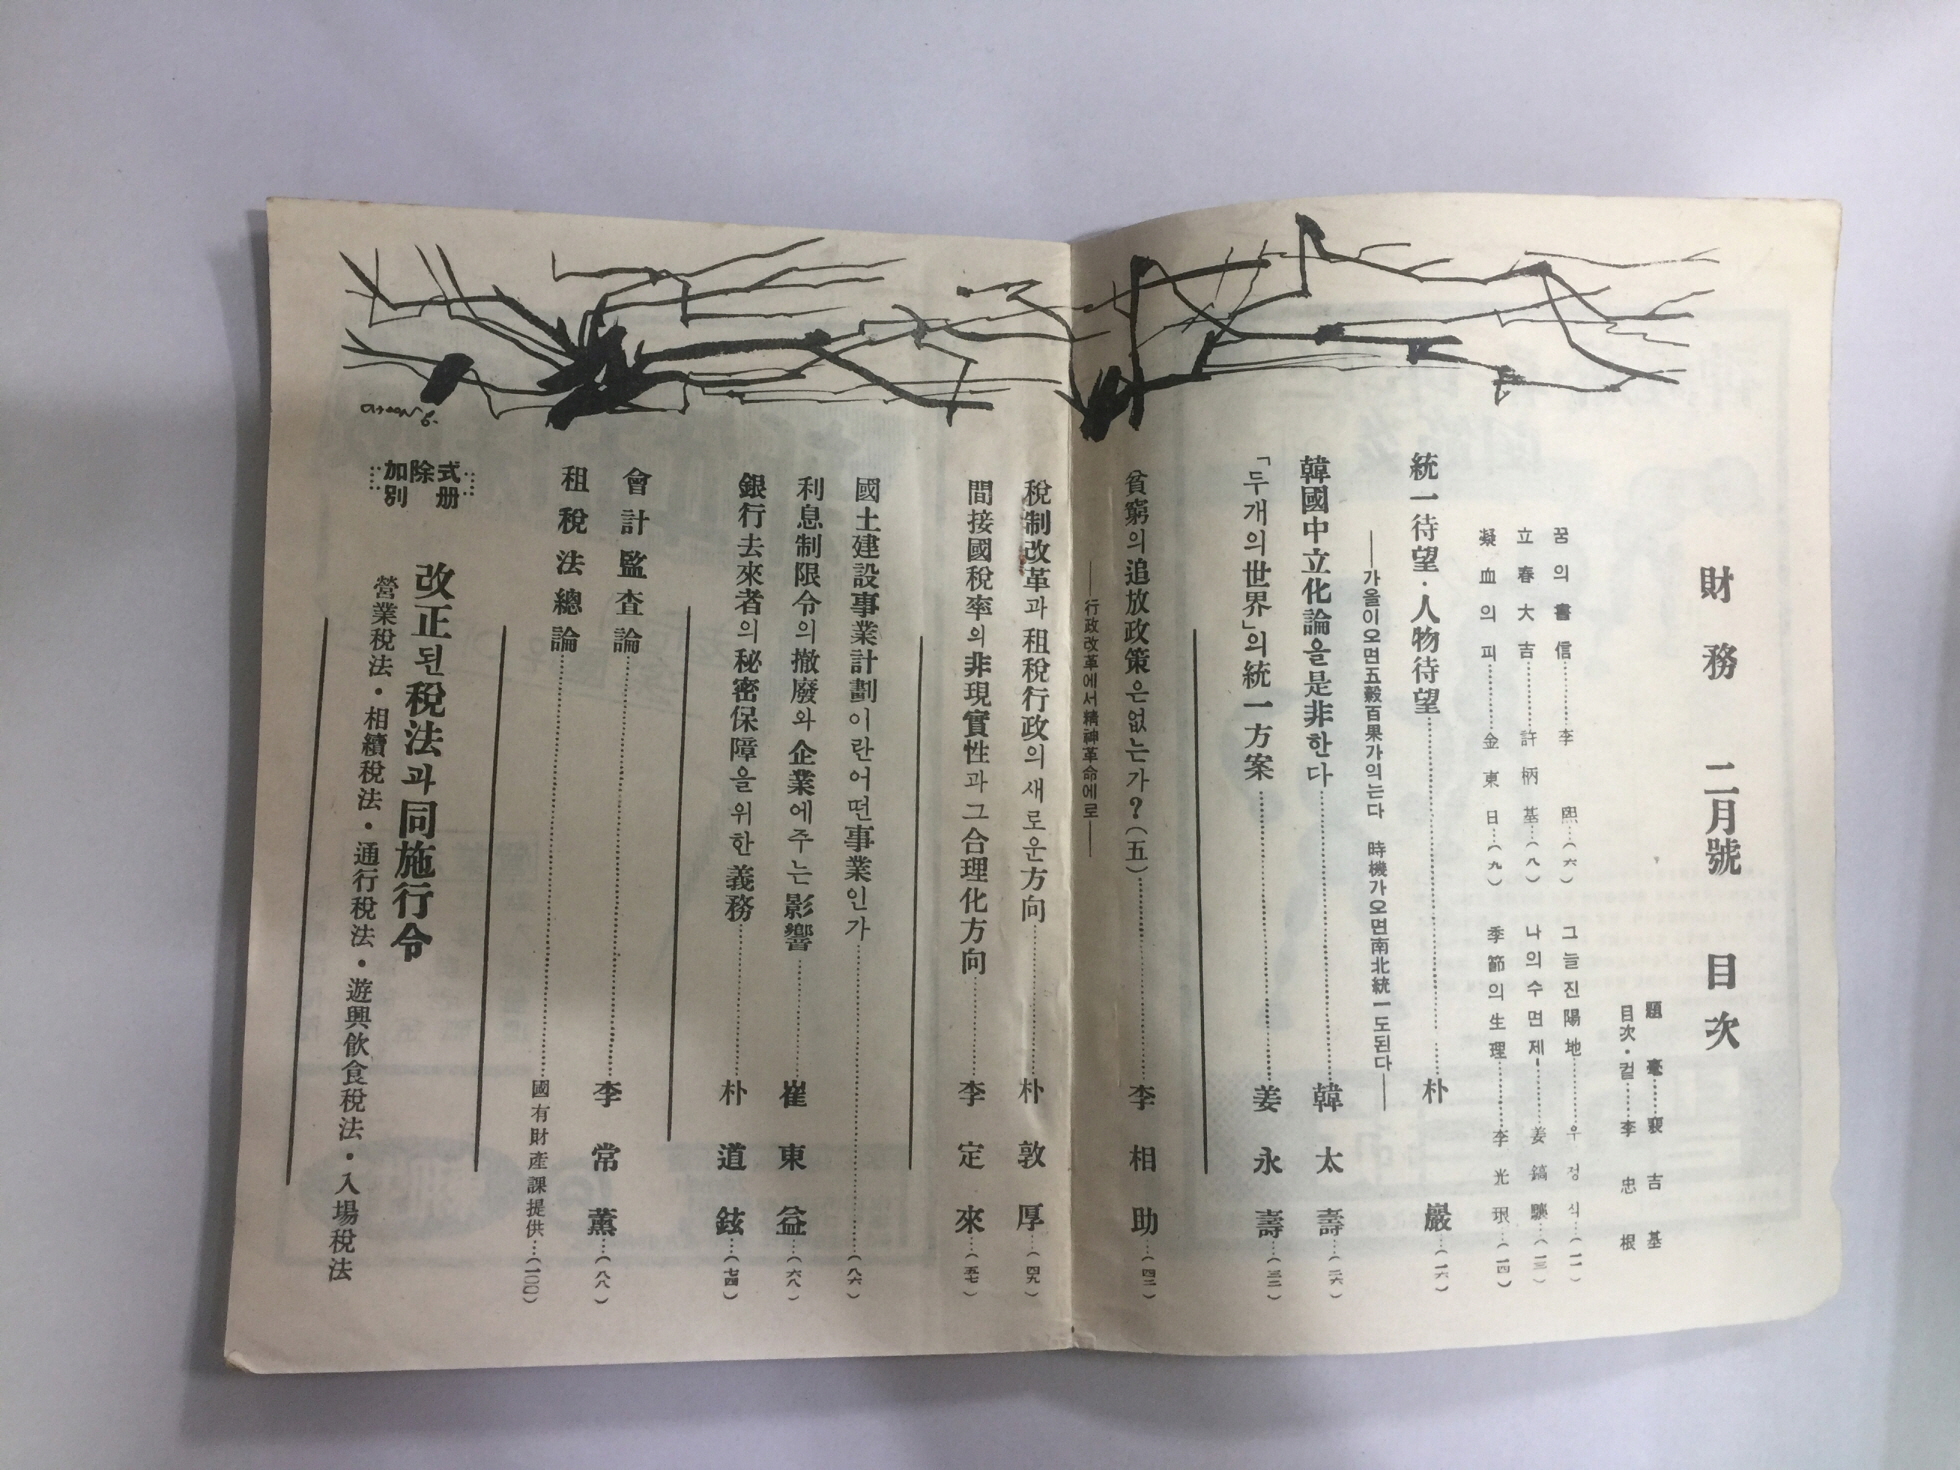 財務 二月號 目次
題毫……裵吉基
目次・컽……李忠根
꿈의書信……李熙…(六)
立春大吉……許柄基…(八)
凝血의피……金東日…(九)
그늘진陽地……우정식…(一一)
나의수면제……姜鎬驥…(一三)
季節의生理……李光珉…(一四)
統一待望・人物待望……朴巖…(一六)
──가을이오면五穀百果가익는다 時機가오면南北統一도된다──
韓國中立化論을是非한다……韓太壽…(二六)
「두개의世界」의統一方案……姜永壽…(三二)
貧窮의追放政策은없는가?(五)……李相助…(四二)
──行政改革에서精神革命에로──
稅制改革과租稅行政의새로운方向……朴敦厚…(四九)
間接國稅率의非現實性과그合理化方向……李定來…(五七)
國土建設事業計劃이란어떤事業인가……(八六)
利息制限令의撤廢와企業에주는影響……崔東益…(六八)
銀行去來者의秘密保障을위한義務……朴道鉉…(七四)
會計監査論……李常薰…(八八)
租稅法總論……國有財產課提供…(一〇〇)
加除式
別册
改正된稅法과同施行令
營業稅法・相續稅法・通行稅法・遊興飮食稅法・入場稅法